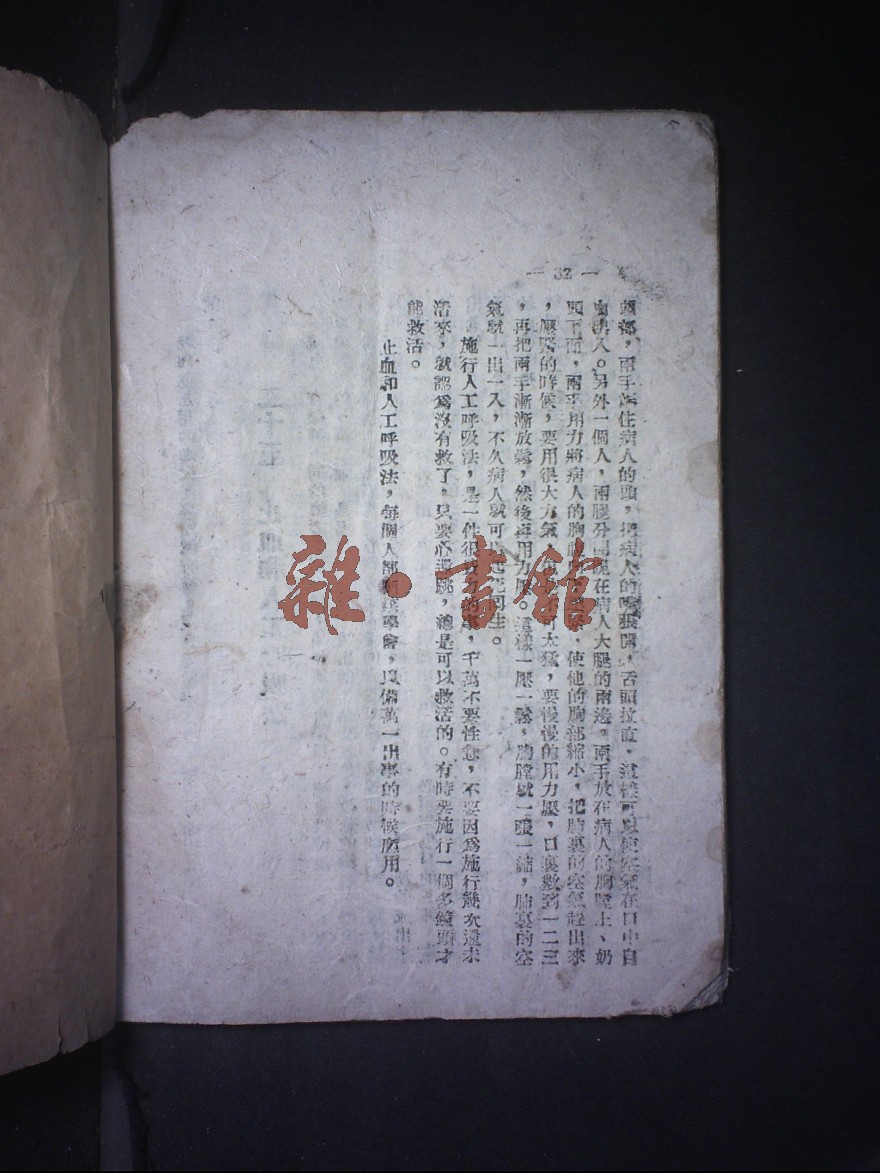 — 82 —
頭部，兩手捧住病人的頭，把病人的嘴張開，舌頭拉直，這樣可以使空氣在口中自
由出入。另外一個人，兩腿分開跪在病人大腿的兩邊。兩手放在病人的胸膛上、奶
頭下面，兩手用力將病人的胸，使他的胸部縮小，把肺裏的空氣趕出來
，壓緊的時候，要用很大力氣，不可太猛，要慢慢的用力壓，口裏數到一二三
，再把兩手漸漸放鬆，然後再用力壓。這樣一壓一鬆，胸膛就一漲一縮，肺裏的空
氣就一出一入，不久病人就可起死回生。
施行人工呼吸法，是一件很的事，千萬不要性急，不要因爲施行幾次還未
活來，就認爲沒有救了，只要心還跳，總是可以救活的。有時要施行一個多鐘頭才
能救活。
止血和人工呼吸法，每個人都應該學會，以備萬一出事的時候應用。
雜·書館